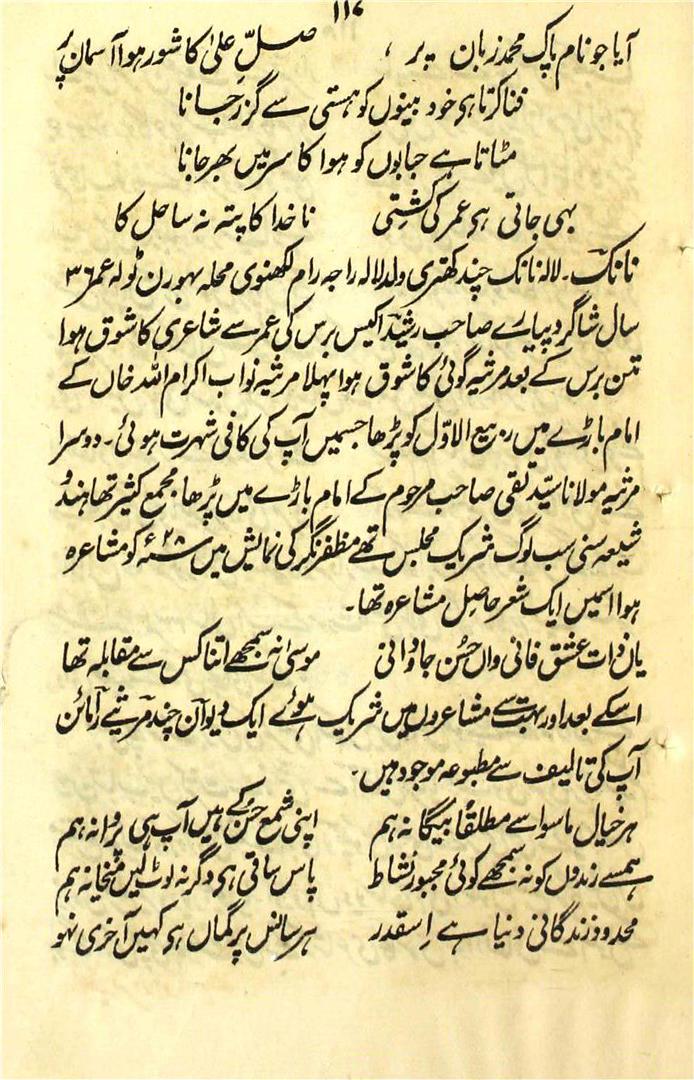 ۱۱۷
آیا جو نام پاک محمد زبان پر ، صلِّ علیٰ کا شور ہوا آسمان پر
فنا کرتا ہی خود بینوں کو ہستی سے گزر جانا
مٹاتا ہے حبابوں کو ہوا کا سر میں بھر جانا
بہی جاتی ہی عمر کی کشتی نا خدا کا پتہ نہ ساحل کا
نانک۔ لالہ نانک چند کھتری ولد لالہ راجہ رام لکھنوی محلہ بہورن ٹولہ عمر ۳۶
سال شاگرد پیارے صاحب رشید اکیس برس کی عمر سے شاعری کا شوق ہوا
تین برس کے بعد مرثیہ گوئی کا شوق ہوا پہلا مرثیہ نواب اکرام اللہ خاں کے
امام باڑے میں ربیع الاوّل کو پڑھا جسمیں آپ کی کافی شہرت ہوئی۔ دوسرا
مرثیہ مولانا سیّد تقی صاحب مرحوم کے امام باڑے میں پڑھا مجمع کثیر تھا ہندو
شیعہ سنی سب لوگ شریک مجلس تھے مظفر نگر کی نمائش میں ۲۸ء کو مشاعرہ
ہوا اسمیں ایک شعر حاصل مشاعرہ تھا۔
یاں ذات عشق فانی واں حُسن جاودانی موسیٰ نہ سمجھے اتنا کس سے مقابلہ تھا
اسکے بعد اور بہت سے مشاعروں میں شریک ہوئے ایک دیوان چند مرثیے رامائن
آپ کی تالیف سے مطبوعہ موجود ہیں۔
ہر خیال ماسوا سے مطلقاً بیگانہ ہم اپنی شمع حسن کے ہیں آپ ہی پروانہ ہم
ہمسے رندوں کو نہ سمجھے کوئی مجبور نشاط پاس ساقی ہی وگرنہ لوٹ لیں میخانہ ہم
محدود زندگانی دنیا ہے اِسقدر ہر سانس پر گماں ہی کہیں آخری نہو